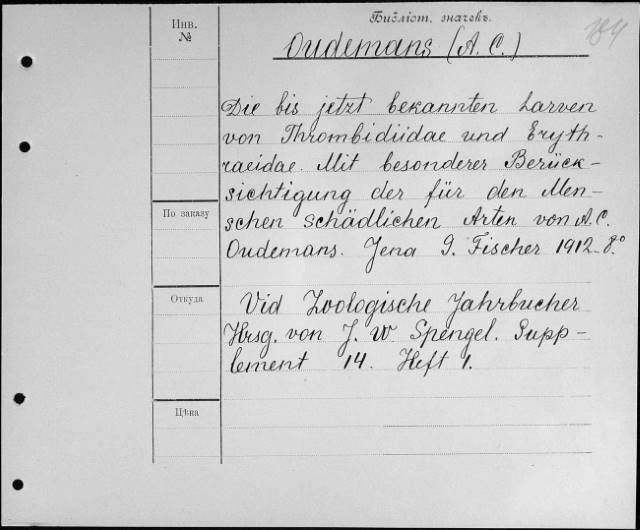 Инв.
№
Библіот. значекъ.
184
Oudemans (A. C.)
Die bis jetzt bekannten Larven
von Thrombidiidae und Eryth-
raeidae. Mit besonderer Berück-
sichtigung der für den Men-
schen schädlichen Arten von A. C.
Oudemans. Jena G. Fischer 1912. 8°
По заказу
Откуда
Vid Zoologische Jahrbucher
Hrsg. von J. W. Spengel. Supp-
lement 14. Heft 1.
Цѣна